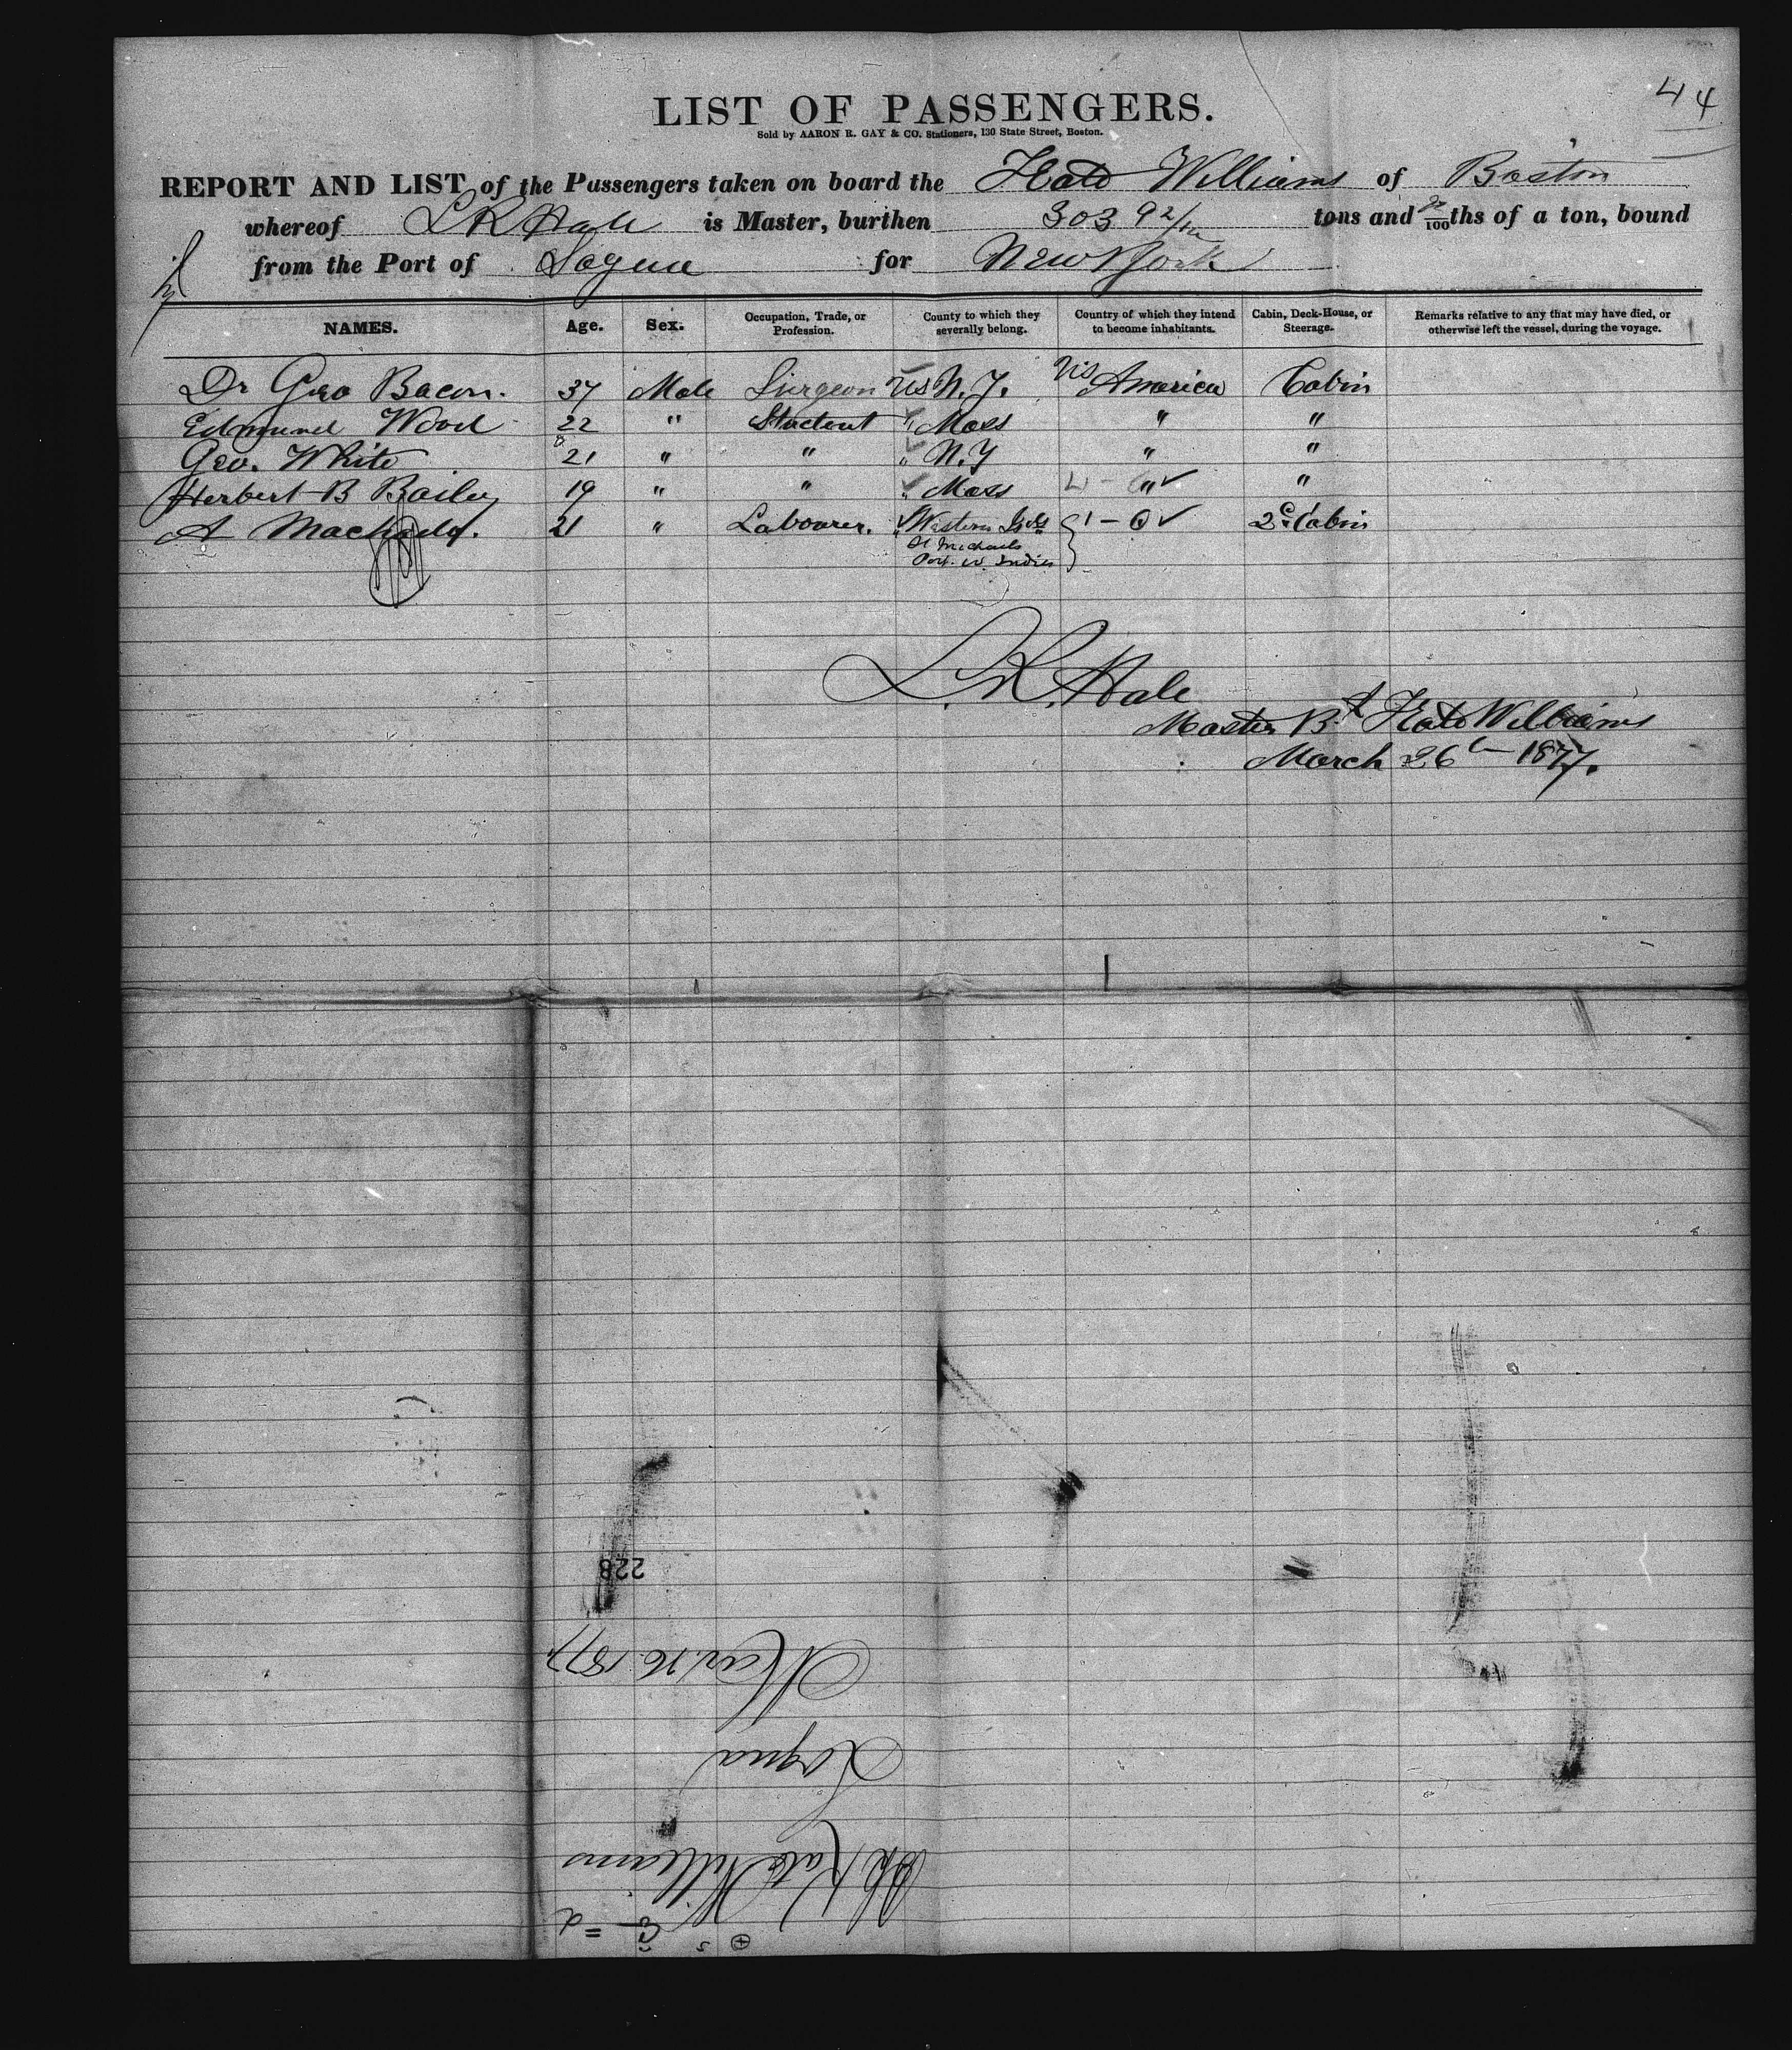 44
LIST OF PASSENGERS.
Sold by AARON R. GAY & CO. Stationers, 130 State Street, Boston.
REPORT AND LIST of the Passengers taken on board the Kate Williams of Boston
whereof L R Hale is Master, burthen 303 92/100 tons and 92/100ths of a ton, bound
from the Port of Sagua for New York
NAMES. Age. Sex. Occupation, Trade, or Profession. County to which they severally belong. Country of which they intend to become inhabitants. Cabin, Deck-House, or Steerage. Remarks relative to any that may have died, or otherwise left the vessel, during the voyage.
Dr Geo Bacon. 37 Male Surgeon US N.Y. US America Cabin
Edmund Wood 22 " Student " Mass " "
Geo. White 21 " " " N.Y " "
Herbert B Bailey 19 " " " Mass " "
A Machado. 21 " Labourer. Western Isds 2d Cabin
St Michaels
Port. W. Indies
L. R. Hale
Master Bk Kate Williams
March 26th 1877.
228
Mar. 26. 1877
Sagua
Kate Williams